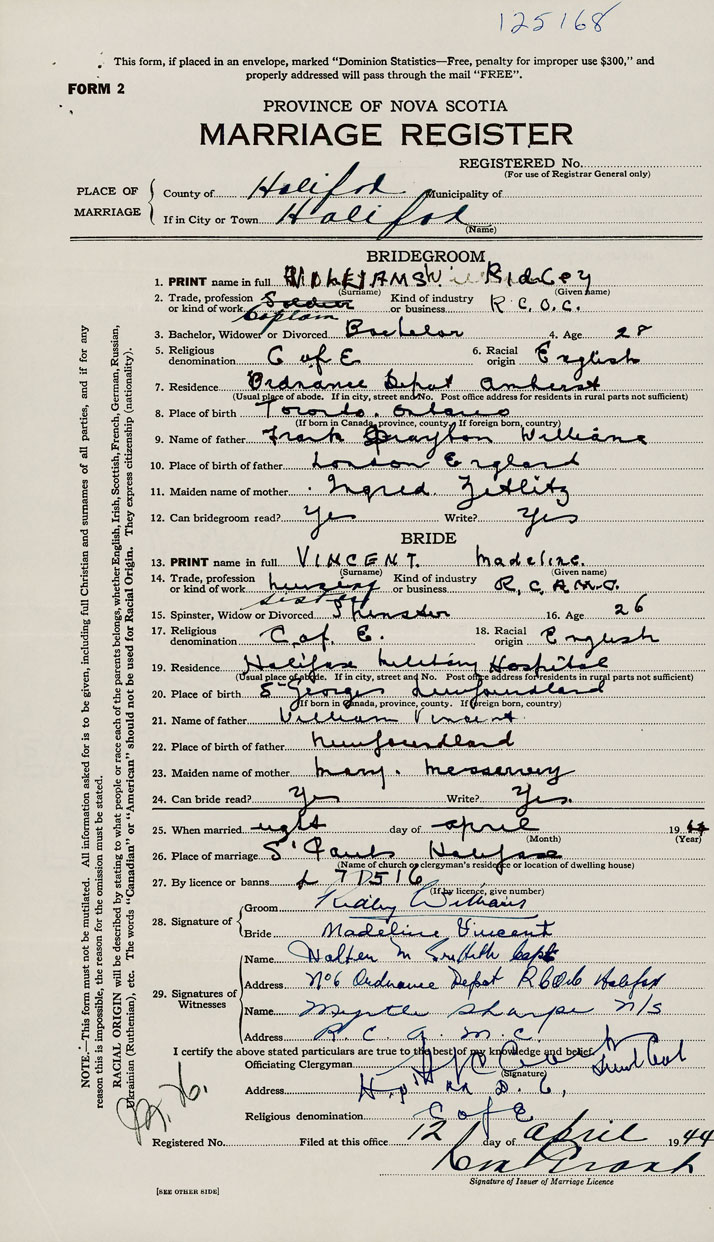 125168
This form, if placed in an envelope, marked "Dominion Statistics—Free, penalty for improper use $300," and
properly addressed will pass through the mail "FREE".
FORM 2
PROVINCE OF NOVA SCOTIA
MARRIAGE REGISTER
REGISTERED No.
(For use of Registrar General only)
PLACE OF MARRIAGE
County of Halifax Municipality of
If in City or Town Halifax
(Name)
BRIDEGROOM
1. PRINT name in full WILLIAMS Ridley
(Surname) (Given name)
2. Trade, profession or kind of work Soldier Captain Kind of industry or business R.C.O.C.
3. Bachelor, Widower or Divorced Bachelor 4. Age 28
5. Religious denomination C of E 6. Racial origin English
7. Residence Ordnance Depot Amherst
(Usual place of abode. If in city, street and No. Post office address for residents in rural parts not sufficient)
8. Place of birth Toronto. Ontario
(If born in Canada, province, county. If foreign born, country)
9. Name of father Frank Drayton Williams
10. Place of birth of father London England
11. Maiden name of mother Ingred Zetlitz
12. Can bridegroom read? Yes Write? Yes
BRIDE
13. PRINT name in full VINCENT. Madeline.
(Surname) (Given name)
14. Trade, profession or kind of work nursing sister Kind of industry or business R.C.A.M.C.
15. Spinster, Widow or Divorced Spinster 16. Age 26
17. Religious denomination C. of. E. 18. Racial origin English
19. Residence Halifax Military Hospital
(Usual place of abode. If in city, street and No. Post office address for residents in rural parts not sufficient)
20. Place of birth St Georges Newfoundland
(If born in Canada, province, county. If foreign born, country)
21. Name of father William Vincent
22. Place of birth of father Newfoundland
23. Maiden name of mother Mary. Messervey
24. Can bride read? Yes Write? Yes.
25. When married eight day of april 1944
(Month) (Year)
26. Place of marriage St Pauls Halifax
(Name of church or clergyman's residence or location of dwelling house)
27. By licence or banns L 71516
(If by licence, give number)
28. Signature of
Groom Ridley Williams
Bride Madeline Vincent
29. Signatures of Witnesses
Name M Griffith Capt
Address No 6 Ordnance Depot RCOC Halifax
Name Myrtle Sharpe N/S
Address R.C.A.M.C.
I certify the above stated particulars are true to the best of my knowledge and belief.
Officiating Clergyman
(Signature)
Address
Religious denomination C of E
Registered No. Filed at this office 12 day of april 1944
Signature of Issuer of Marriage Licence
[SEE OTHER SIDE]
NOTE.—This form must not be mutilated. All information asked for is to be given, including full Christian and surnames of all parties, and if for any
reason this is impossible, the reason for the omission must be stated.
RACIAL ORIGIN will be described by stating to what people or race each of the parents belongs, whether English, Irish, Scottish, French, German, Russian,
Ukrainian (Ruthenian), etc. The words "Canadian" or "American" should not be used for Racial Origin. They express citizenship (nationality).